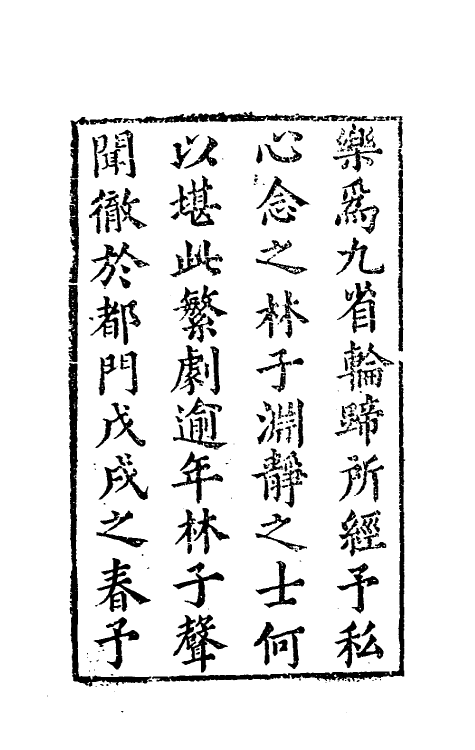 樂爲九省輪蹄所經予私
心念之林子淵靜之士何
以堪此繁劇逾年林子聲
聞徹於都門戊戌之春予